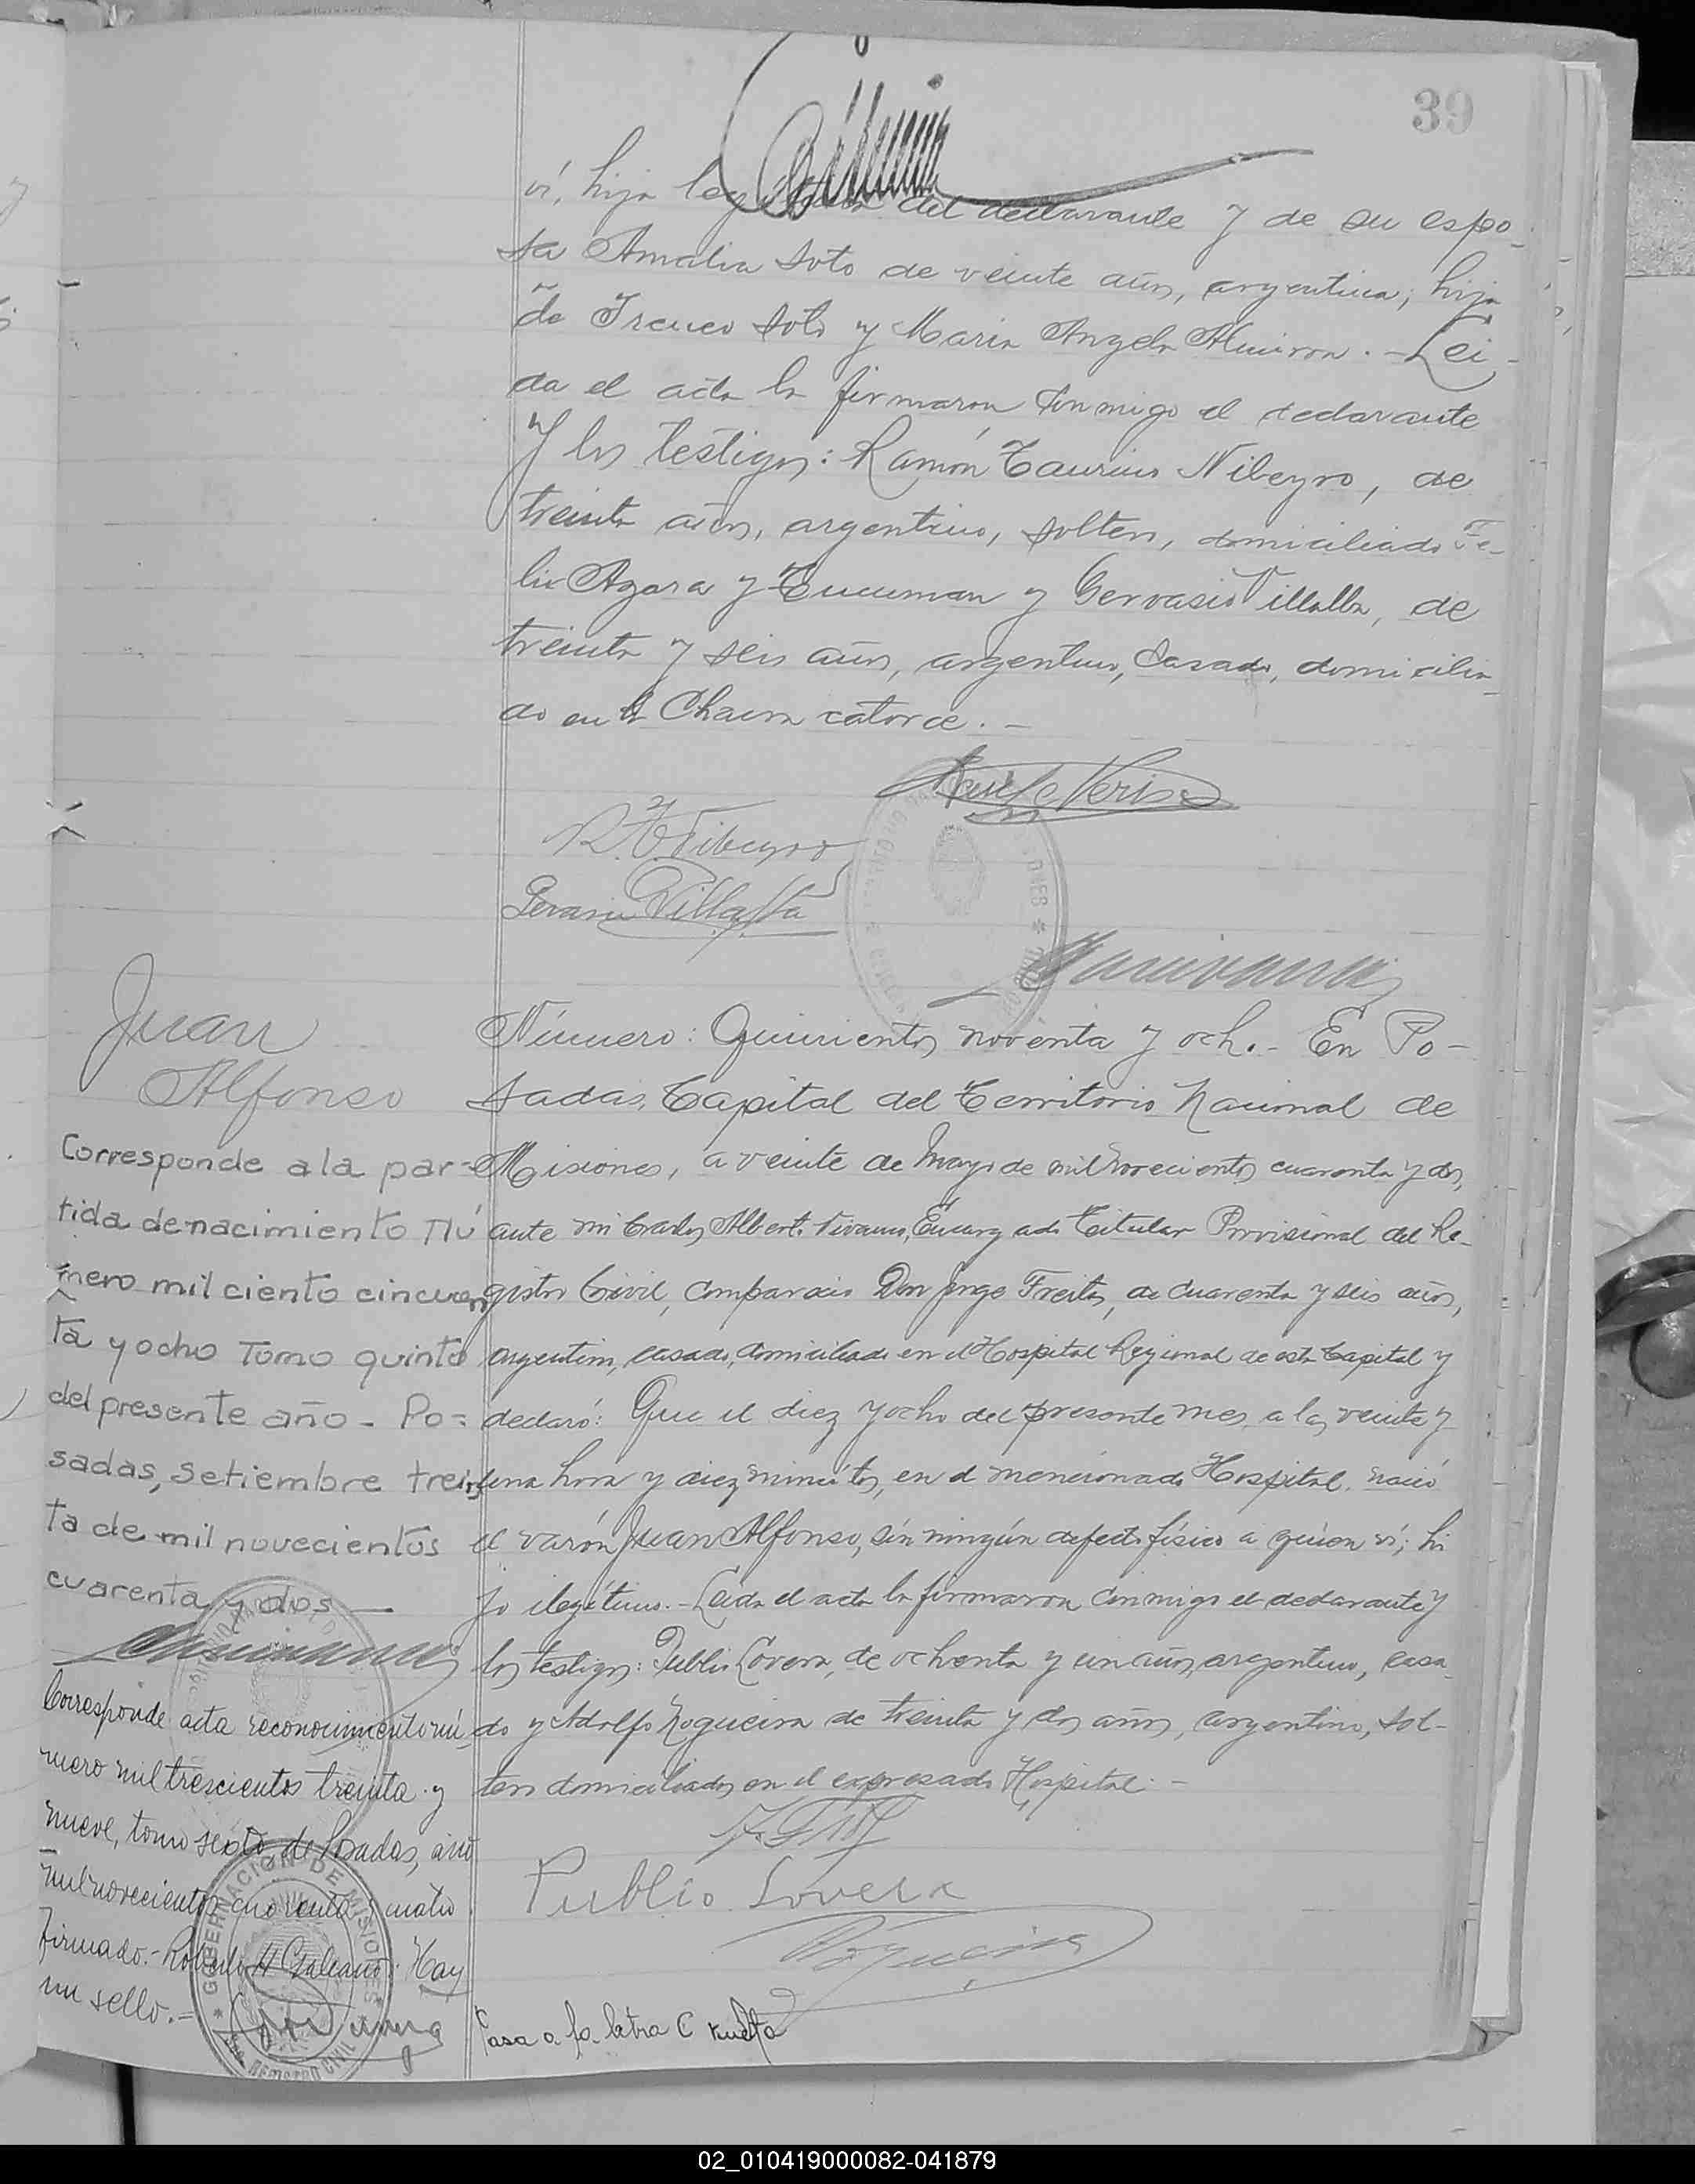 39
ví, hija legítima del declarante y de su espo-
sa Amalia Soto de veinte años, argentina; hija
de Ireneo Soto y Maria Angela Almiron. - Lei-
da el acta la firmaron conmigo el declarante
y los testigos: Ramón Taurino Nibeyro, de
treinta años, argentino, soltero, domiciliado Fe-
lix Azara y Tucuman y Gervasio Villalba, de
treinta y seis años, argentino, casado, domicilia-
do en la Chacra catorce. -
Gervasio Villalba
Juan
Alfonso
Corresponde a la par-
tida de nacimiento nú
mero mil ciento cincuen
ta y ocho Tomo quinto
del presente año - Po=
sadas, setiembre trein
ta de mil novecientos
cuarenta y dos —
Corresponde acta reconocimiento nú-
mero mil trescientos treinta y
nueve, tomo sexto de Posadas, año
mil novecientos cuarenta y cuatro
Firmado:- Roberto H Galeano: Hay
un sello.-
GOBERNACION DE MISIONES
REGISTRO CIVIL
Número: Quinientos noventa y ocho.- En Po-
sadas, Capital del Territorio Nacional de
Misiones, a veinte de Mayo de mil novecientos cuarenta y dos,
ante mi Carlos Alberto Vivanco, Encargado Titular Provisional del Re-
gistro Civil, compareció Don Jorge Freitas, de cuarenta y seis años,
argentino, casado, domiciliado en el Hospital Regional de esta Capital y
declaró: Que el diez y ocho del presente mes, a las veinte y
una hora y diez minutos, en el mencionado Hospital, nació
el varón Juan Alfonso, sin ningún defecto físico a quien ví; hi
jo ilegítimo. - Leida el acta la firmaron conmigo el declarante y
los testigos: Publio Lovera, de ochenta y un años, argentino, casa-
do y Adolfo Nogueira de treinta y dos años, argentino, sol-
tero domiciliados en el expresado Hospital. -
Publio Lovera
Nogueira
Pasa a fo. letra C vuelta
02_010419000082-041879